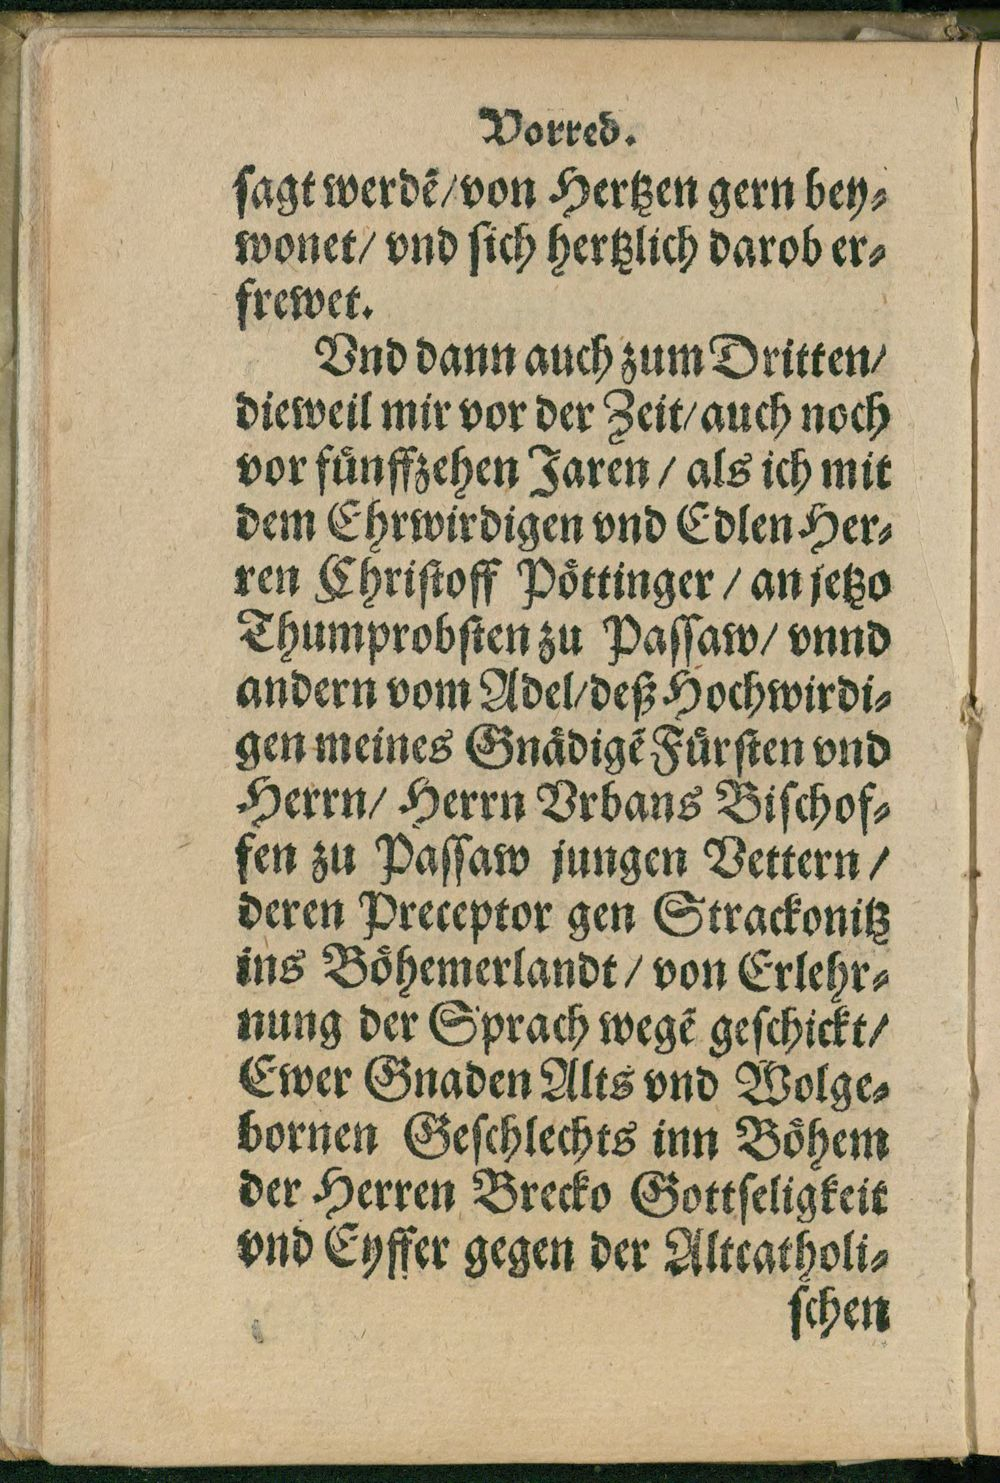 Vorred.
sagt werdẽ/von Hertzen gern bey⸗
wonet/ vnd sich hertzlich darob er⸗
frewet.
Vnd dann auch zum Dritten/
dieweil mir vor der Zeit/auch noch
vor fuͤnffzehen Jaren / als ich mit
dem Ehrwirdigen vnd Edlen Her⸗
ren Christoff Poͤttinger / an jetzo
Thumprobsten zu Passaw/ vnnd
andern vom Adel/deß Hochwirdi⸗
gen meines Gnaͤdigẽ Fuͤrsten vnd
Herrn/ Herrn Vrbans Bischof⸗
fen zu Passaw jungen Vettern /
deren Preceptor gen Strackonitz
ins Boͤhemerlandt / von Erlehr⸗
nung der Sprach wegẽ geschickt/
Ewer Gnaden Alts vnd Wolge⸗
bornen Geschlechts inn Boͤhem
der Herren Brecko Gottseligkeit
vnd Eyffer gegen der Altcatholi⸗
schen